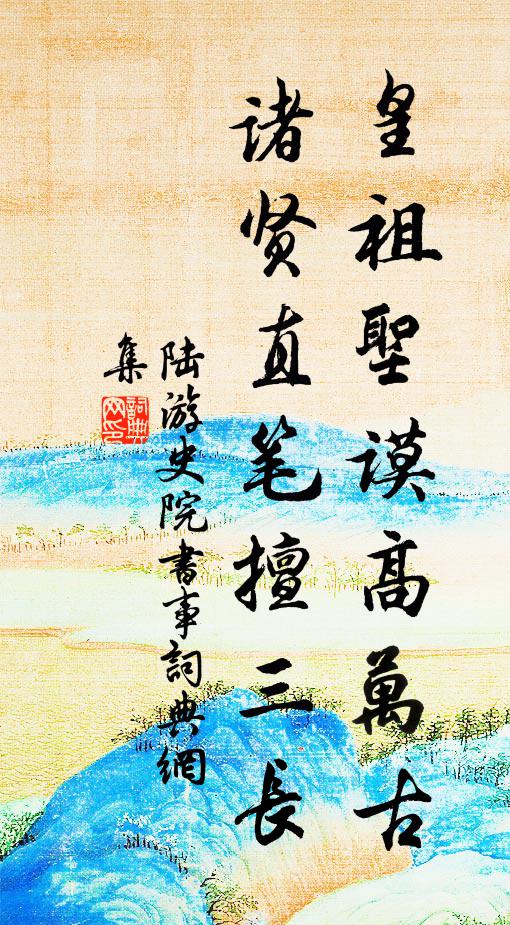 皇祖聖谟高萬古
诸贤直笔擅三長
陆游史院書事詞典網
集
詞典网印